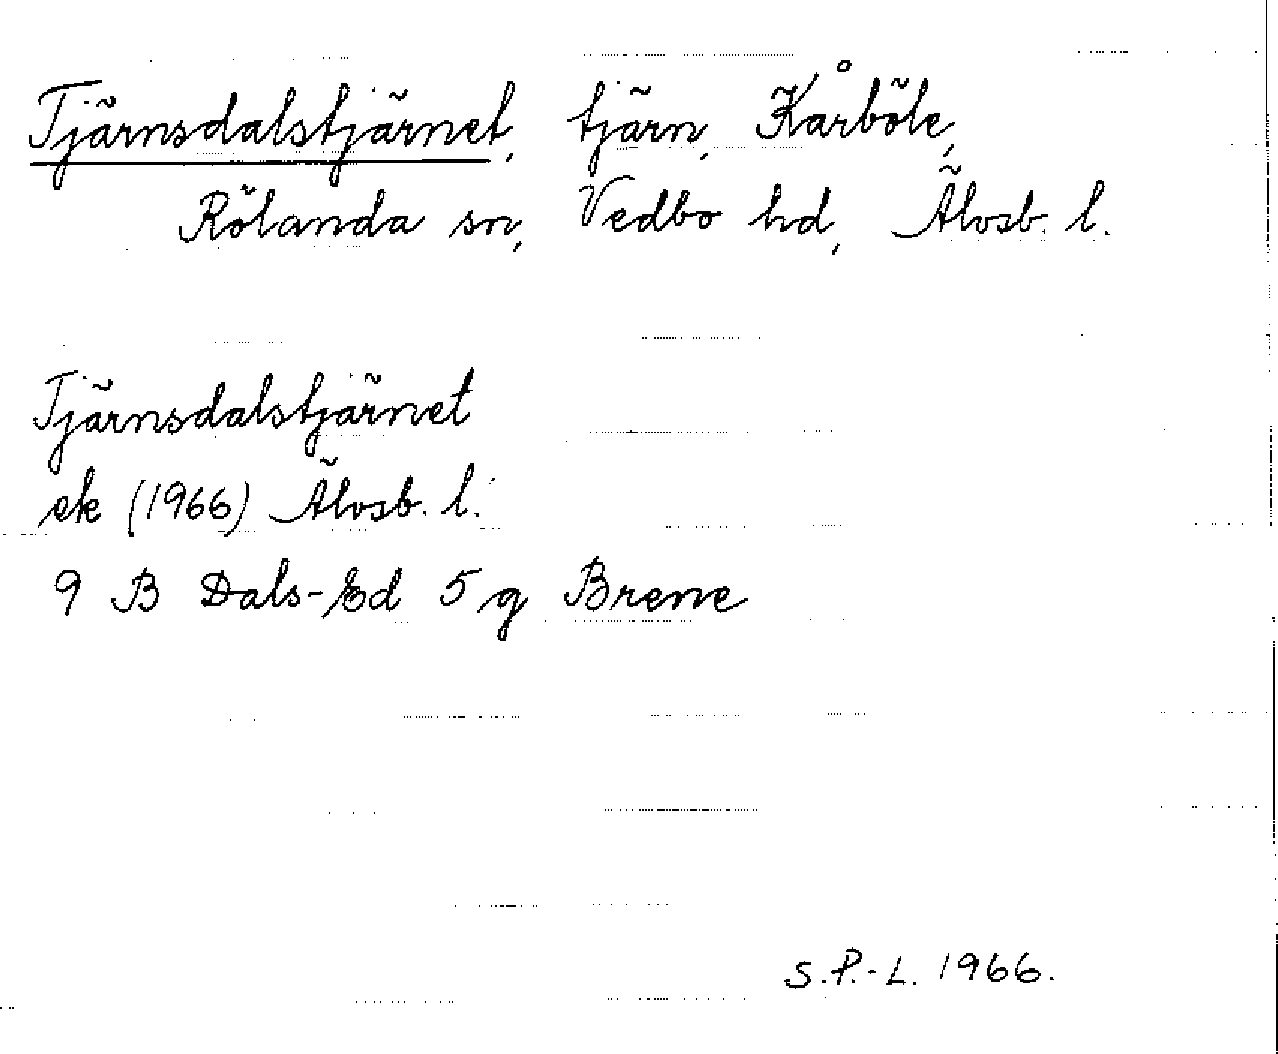 Tjärnsdalstjärnet, tjärn, Kårböle,
Rölanda sn, Vedbo hd, Älvsb. l.
Tjärnsdalstjärnet
ek (1966) Älvsb. l.
9 B Dals-Ed 5 g Brene
S.P.-L. 1966.